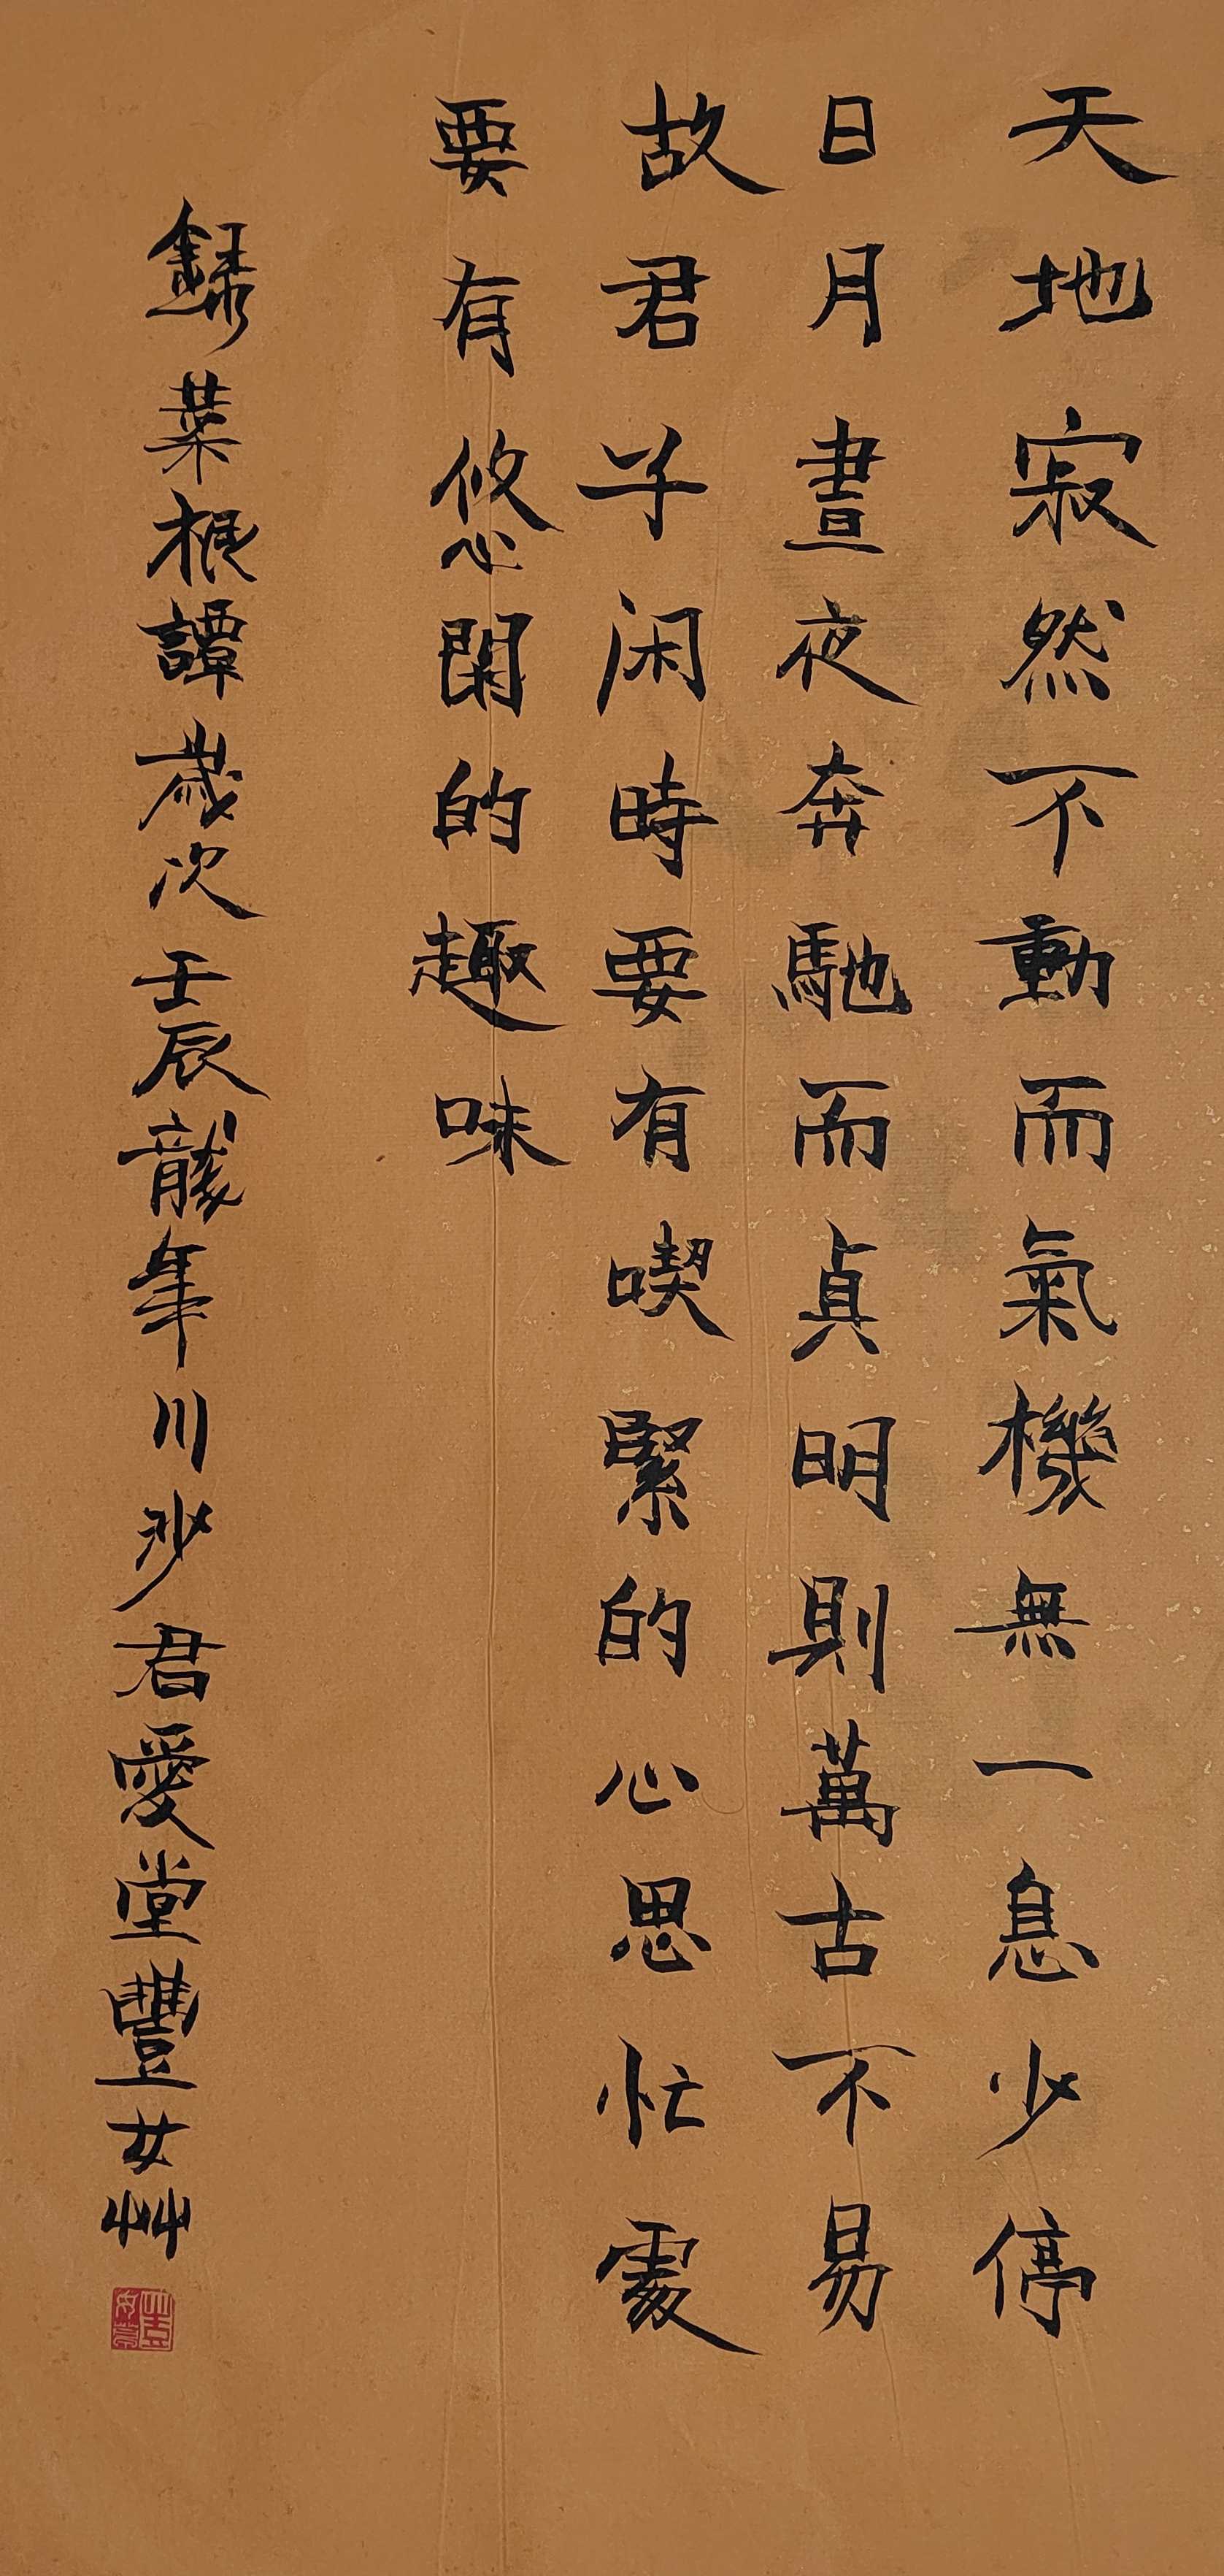 天地寂然不動而氣機無一息少停
日月晝夜奔馳而貞明則萬古不易
故君子闲時要有喫緊的心思忙處
要有悠閑的趣味
錄菜根譚歲次壬辰龍年川沙君愛堂豐女艸